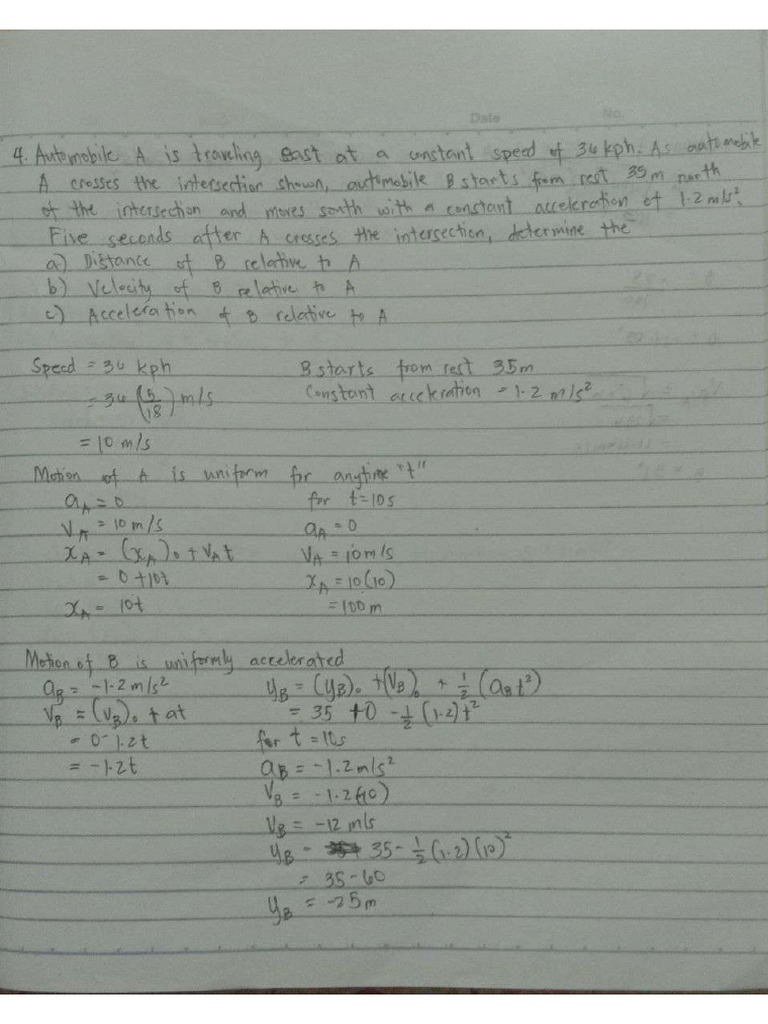 Date No.
4. Automobile A is traveling east at a constant speed of 36 kph. As automobile
A crosses the intersection shown, automobile B starts from rest 35 m north
of the intersection and moves south with a constant acceleration of 1.2 m/s².
Five seconds after A crosses the intersection, determine the
a) Distance of B relative to A
b) Velocity of B relative to A
c) Acceleration of B relative to A
Speed = 36 kph
= 36 (5/18) m/s
= 10 m/s
B starts from rest 35m
Constant acceleration = 1.2 m/s²
Motion of A is uniform for anytime "t"
a_A = 0
V_A = 10 m/s
x_A = (x_A)₀ + V_A t
= 0 + 10t
x_A = 10t
for t = 10s
a_A = 0
V_A = 10 m/s
x_A = 10(10)
= 100 m
Motion of B is uniformly accelerated
a_B = -1.2 m/s²
V_B = (V_B)₀ + at
= 0 - 1.2t
= -1.2t
y_B = (y_B)₀ + (V_B)₀ + ½ (a_B t²)
= 35 + 0 - ½ (1.2) t²
for t = 10s
a_B = -1.2 m/s²
V_B = -1.2(10)
V_B = -12 m/s
y_B = 35 - ½ (1.2) (10)²
= 35 - 60
y_B = -25m